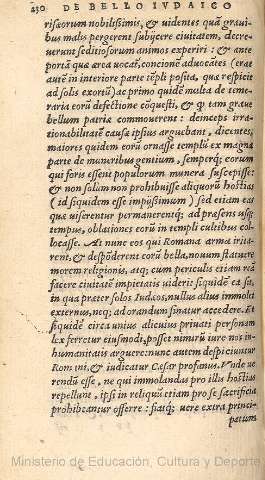 230 DE BELLO IVDAICO
risæorum nobilissimis, & uidentes quā grauibus
bus malis pergerent subijcere ciuitatem, decre
uerunt seditiosorum animos experiri : & ante
portā quæ ærea uocat, concionē aduocates (erat
autē in interiore parte tēpli posita, quæ respicit
ad solis exorū) ac primo quidē multa de teme-
raria eorū defectione cōquesti, & ꝙ tam graue
bellum patriæ commouerent : deinceps irra-
tionabilitatē causæ ipsius arguebant, dicentes,
maiores quidem eorū ornasse templū ex magna
parte de muneribus gentium, semperq; eorum
qui foris essent populorum munera suscepisse:
& non solum non prohibuisse aliquorū hostias
( id siquidem esse impijssimum ) sed etiam eas
quæ uiserentur permanerentq; ad præsens usq;
tempus, oblationes eorū in templi cultibus col-
locasse. At nunc eos qui Romana arma irrita-
rent, & despōderent eorū bella, nouum statuere
morem religionis, atq; cum periculis etiam rē
facere ciuitatē impietatis uiderit siquidē ea sa,
in qua præter solos Iudæos, nullus alius immolit
externus, neq; adorandum sinatur accedere. Et
siquidē circa unius alicuius priuati personam
lex ferretur eiusmodi, posset nimirū iure nos in-
humanitatis arguere: nunc autem despiciuntur
Romani, & iudicatur Cæsar profanus. Vnde ue
rendū esse, ne qui immolandas pro illis hostias
repellunt, ipsi in reliquū etiam pro se sacrificia
prohibeantur offerre : fiatq; uere extra princi-
patum
Ministerio de Educación, Cultura y Deporte